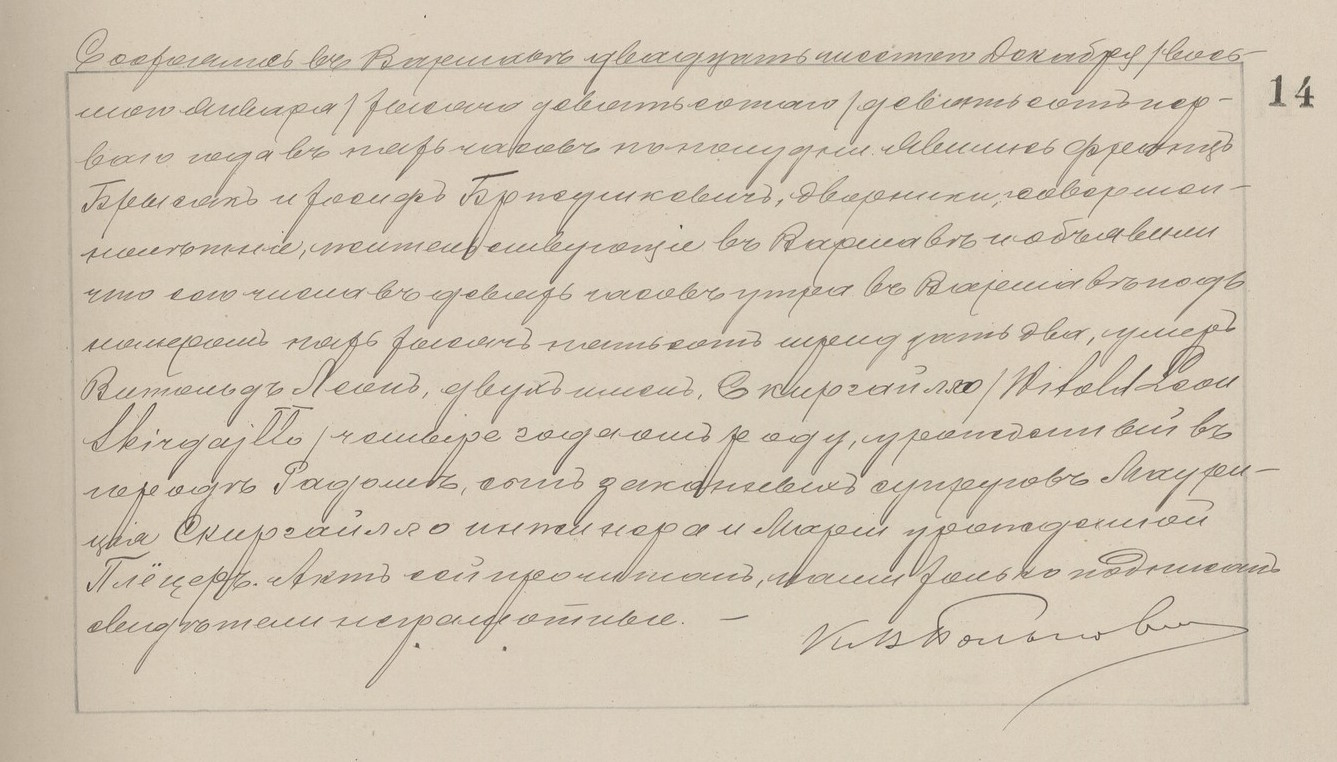 Состоялось въ Варшавѣ двадцать шестого Декабря /вось-
мого Января/ тысяча девятьсотаго /девятьсотъ пер-
14
ваго года въ пять часовъ по полудни. Явились Францъ
и Іосифъ дворники, совершен-
нолѣтніе, жительствующіе въ Варшавѣ и объявили
что сего числа въ девять часовъ утра въ Варшавѣ подъ
номеромъ пять тысячъ пятьсотъ тридцать два, умеръ
Витольдъ Леонъ, двухъ именъ, Скиргайлло /Witold Leon
Skirgajłło/ четыре года отъ роду, урожденный въ
городѣ Радомѣ, сынъ законныхъ супруговъ Маури-
ція Скиргайлло инженера и Маріи урожденной
Плёцеръ. Актъ сей прочитанъ, нами только подписанъ
свидѣтели неграмотные. —